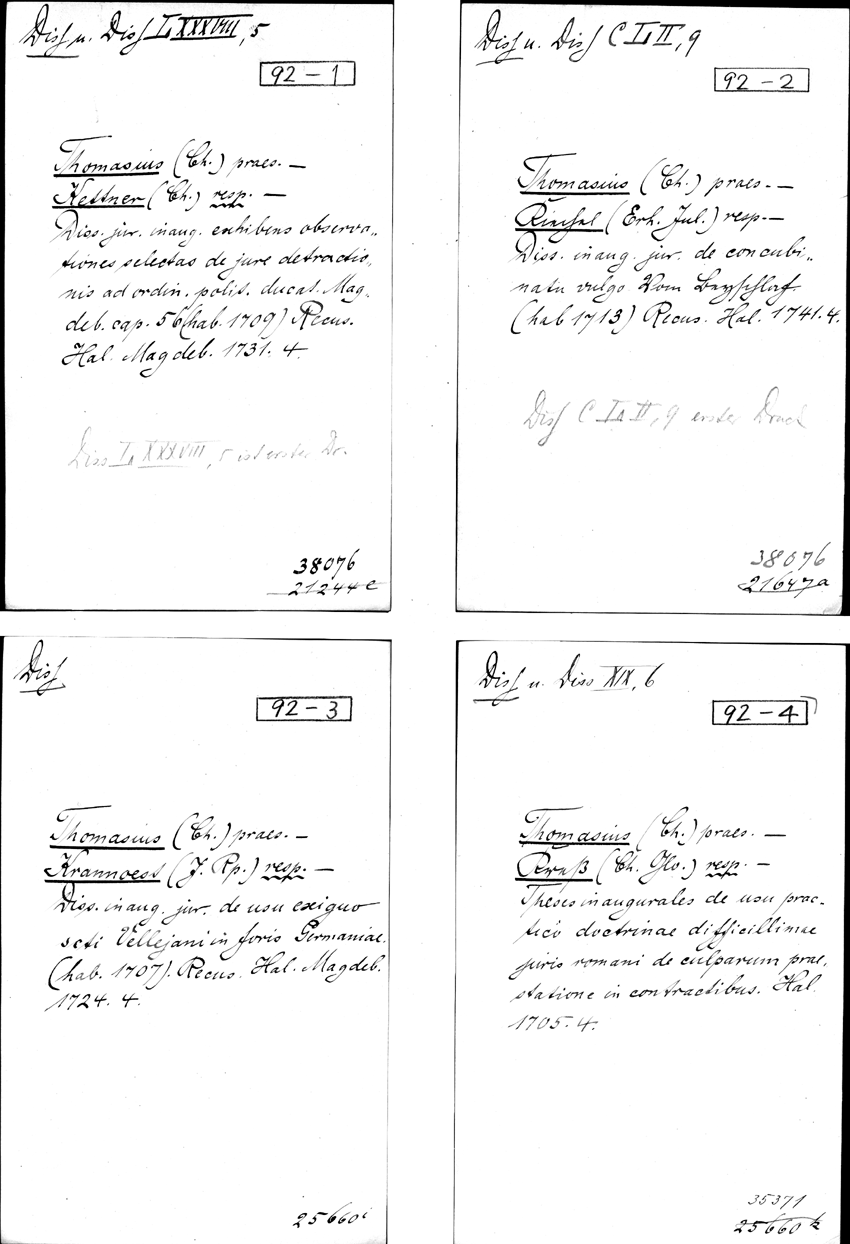 Diss u. Diss LXXXVIII, 5
92 - 1
Thomasius (Ch.) praes. —
Kettner (Ch.) resp. —
Diss. jur. inaug. exhibens observa-
tiones selectas de jure detractio-
nis ad ordin. polit. ducat. Mag-
deb. cap. 56 (hab. 1709) Recus.
Hal. Magdeb. 1731. 4.
Diss LXXXVIII, 5 ist erster Dr.
38076
21244e
Diss u. Diss CLII, 9
92 - 2
Thomasius (Ch.) praes. —
(Erh. Jul.) resp. —
Diss. inaug. jur. de concubi-
natu vulgo Vom Beyschlaf
(hab 1713) Recus. Hal. 1741. 4.
Diss CLII, 9 erster Druck
38076
21647a
Diss
92 - 3
Thomasius (Ch.) praes. —
Krannoest (J. Rp.) resp. —
Diss. inaug. jur. de usu exiguo
scti Vellejani in foris Germaniae.
(hab. 1707). Recus. Hal. Magdeb.
1724. 4.
25660i
Diss u. Diss XIX, 6
92 - 4
Thomasius (Ch.) praes. —
(Ch. Glo.) resp. —
Theses inaugurales de usu prac-
tico doctrinae difficillimae
juris romani de culparum prae-
statione in contractibus. Hal.
1705. 4.
35371
25660k